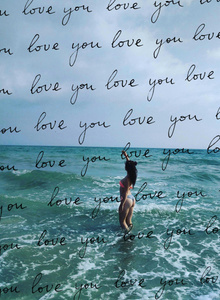 love you love you
love you love you
love you love you
you love you love you
you love you love
you love you love you
you love you love you
you love you love you
love you love you